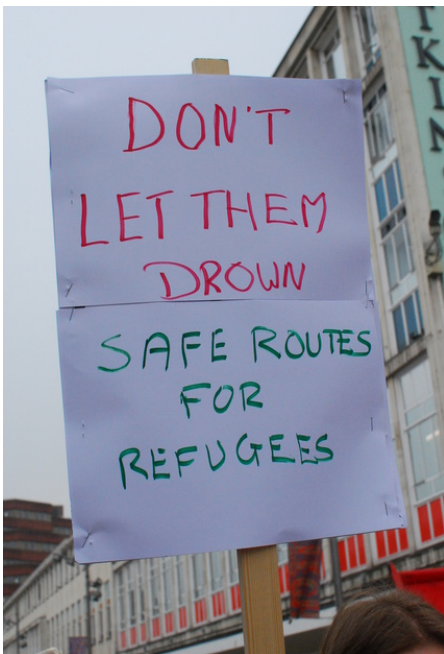 DON'T
LET THEM
DROWN
SAFE ROUTES
FOR
REFUGEES